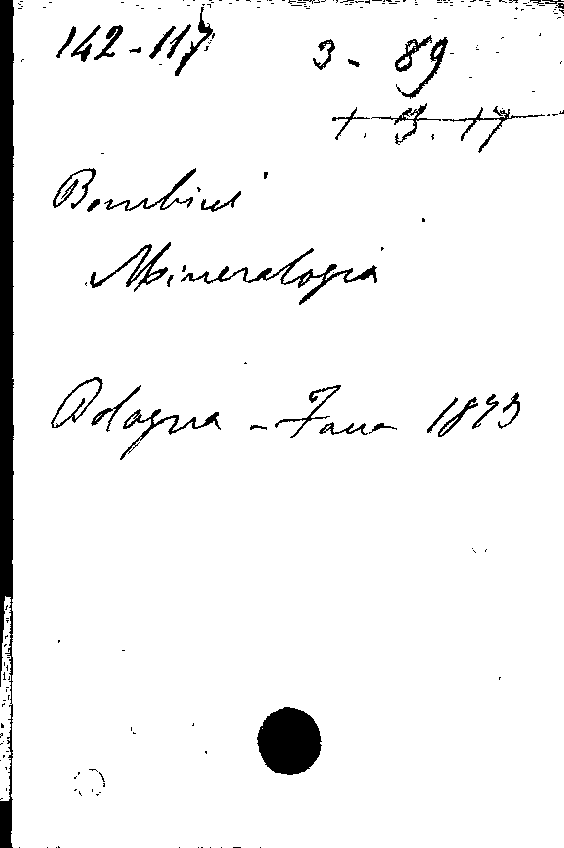 142-117 3-89
1.3.17
Bombicci
Mineralogia
Bologna - Fava 1873